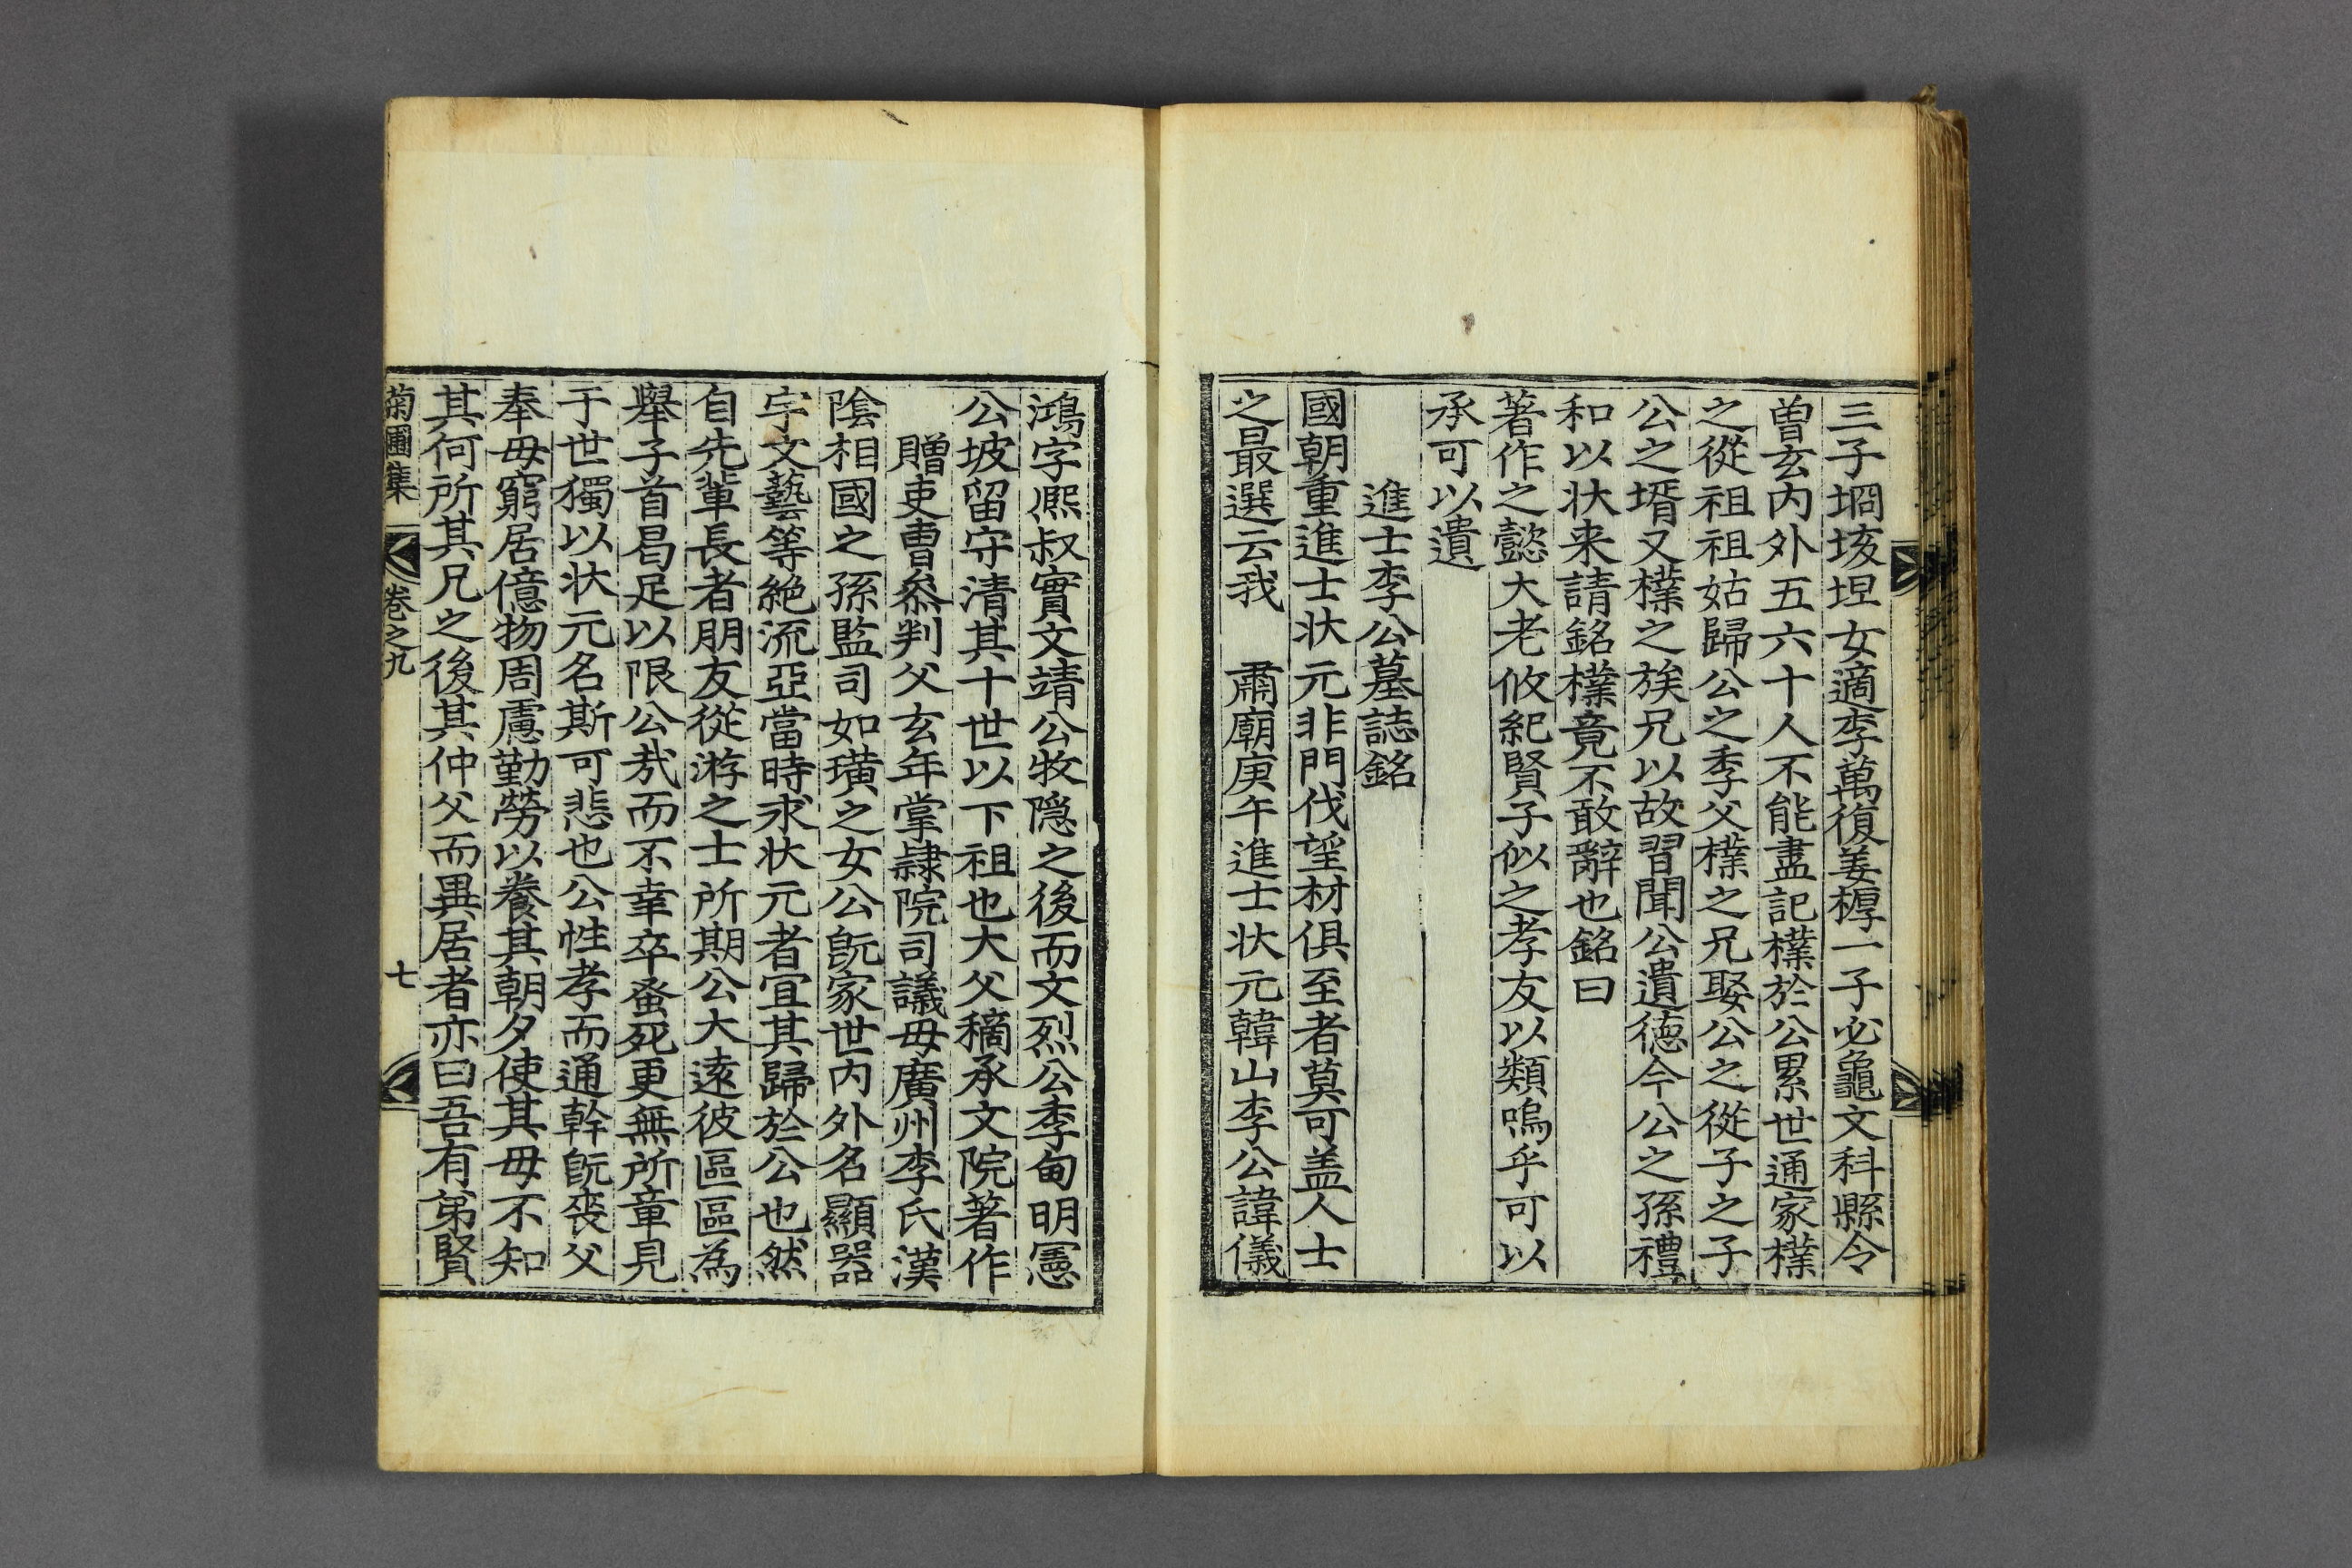 三子堈垓垾女適李萬復姜桴一子必龜文科縣令
曽玄内外五六十人不能盡記檏於公累世通家檏
之從祖祖姑歸公之季父檏之兄娶公之從子之子
公之壻又檏之族兄以故習聞公遺德今公之孫禮
和以状来請銘檏竟不敢辭也銘曰
著作之懿大老攸紀賢子似之孝友以類嗚乎可以
承可以遺
進士李公墓誌銘
國朝重進士状元非門伐望材俱至者莫可盖人士
之最選云我 肅廟庚午進士状元韓山李公諱儀
鴻字凞叔實文靖公牧隠之後而文烈公季甸明憲
公坡留守清其十世以下祖也大父穧承文院著作
贈吏曺叅判父玄年掌隷院司議母廣州李氏漢
陰相國之孫監司如璜之女公旣家世内外名顯器
宇文藝等絶流亞當時求状元者宜其歸於公也然
自先輩長者朋友從游之士所期公大遠彼區區為
舉子首曷足以限公㢤而不幸卒蚤死更無所章見
于世獨以状元名斯可悲也公性孝而通幹旣喪父
奉母窮居億物周慮勤勞以養其朝夕使其母不知
其何所其兄之後其仲父而異居者亦曰吾有弟賢
菊圃集 卷之九 七